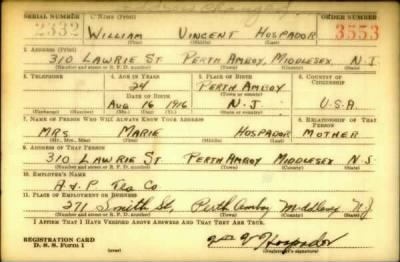 SERIAL NUMBER 1. NAME (Print) ORDER NUMBER
2332 WILLIAM VINCENT HOSPADOR 3553
(First) (Middle) (Last)
2. ADDRESS (Print)
310 LAWRIE ST PERTH AMBOY, MIDDLESEX N.J.
(Number and street or R. F. D. number) (Town) (County) (State)
3. TELEPHONE 4. AGE IN YEARS 5. PLACE OF BIRTH 6. COUNTRY OF CITIZENSHIP
24 PERTH AMBOY
DATE OF BIRTH (Town or county)
AUG 16 1916 N.J. U.S.A.
(Exchange) (Number) (Mo.) (Day) (Yr.) (State or country)
7. NAME OF PERSON WHO WILL ALWAYS KNOW YOUR ADDRESS 8. RELATIONSHIP OF THAT PERSON
MRS MARIE HOSPADOR MOTHER
(Mr., Mrs., Miss) (First) (Middle) (Last)
9. ADDRESS OF THAT PERSON
310 LAWRIE ST PERTH AMBOY MIDDLESEX N.J.
(Number and street or R. F. D. number) (Town) (County) (State)
10. EMPLOYER'S NAME
A & P Tea Co
11. PLACE OF EMPLOYMENT OR BUSINESS
271 Smith St, Perth Amboy Middlesex N.J.
(Number and street or R. F. D. number) (Town) (County) (State)
I AFFIRM THAT I HAVE VERIFIED ABOVE ANSWERS AND THAT THEY ARE TRUE.
REGISTRATION CARD
D. S. S. Form 1 Wm V Hospador
(over) (Registrant's signature)